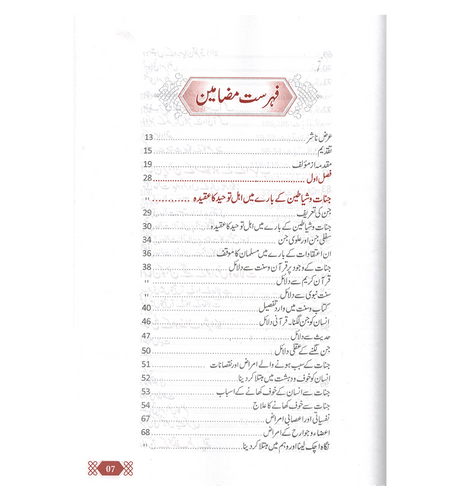 فہرست مضامین
عرض ناشر 13
تقدیم 15
مقدمہ از مؤلف 19
فصل اول 28
جنات و شیاطین کے بارے میں اہل توحید کا عقیدہ "
جن کی تعریف 29
جنات و شیاطین کے بارے میں اہل توحید کا عقیدہ 30
سفلی جن اور علوی جن 34
ان اعتقادات کے بارے میں مسلمان کا موقف 36
جنات کے وجود پر قرآن و سنت سے دلائل 38
قرآن کریم سے دلائل "
سنت نبوی سے دلائل "
کتاب و سنت میں وارد تفصیل 40
انسان کو جن لگنا۔ قرآنی دلائل 46
حدیث سے دلائل 47
جن لگنے کے عقلی دلائل 50
جنات کے سبب ہونے والے امراض اور نقصانات 51
انسان کو خوف و دہشت میں مبتلا کر دینا 52
جنات سے انسان کے خوف کھانے کے اسباب 53
جنات سے خوف کھانے کا علاج 54
نفسیاتی اور اعصابی امراض 67
اعضاء و جوارح کے امراض 68
نگاہ اچک لینا اور وہم میں مبتلا کر دینا "
07